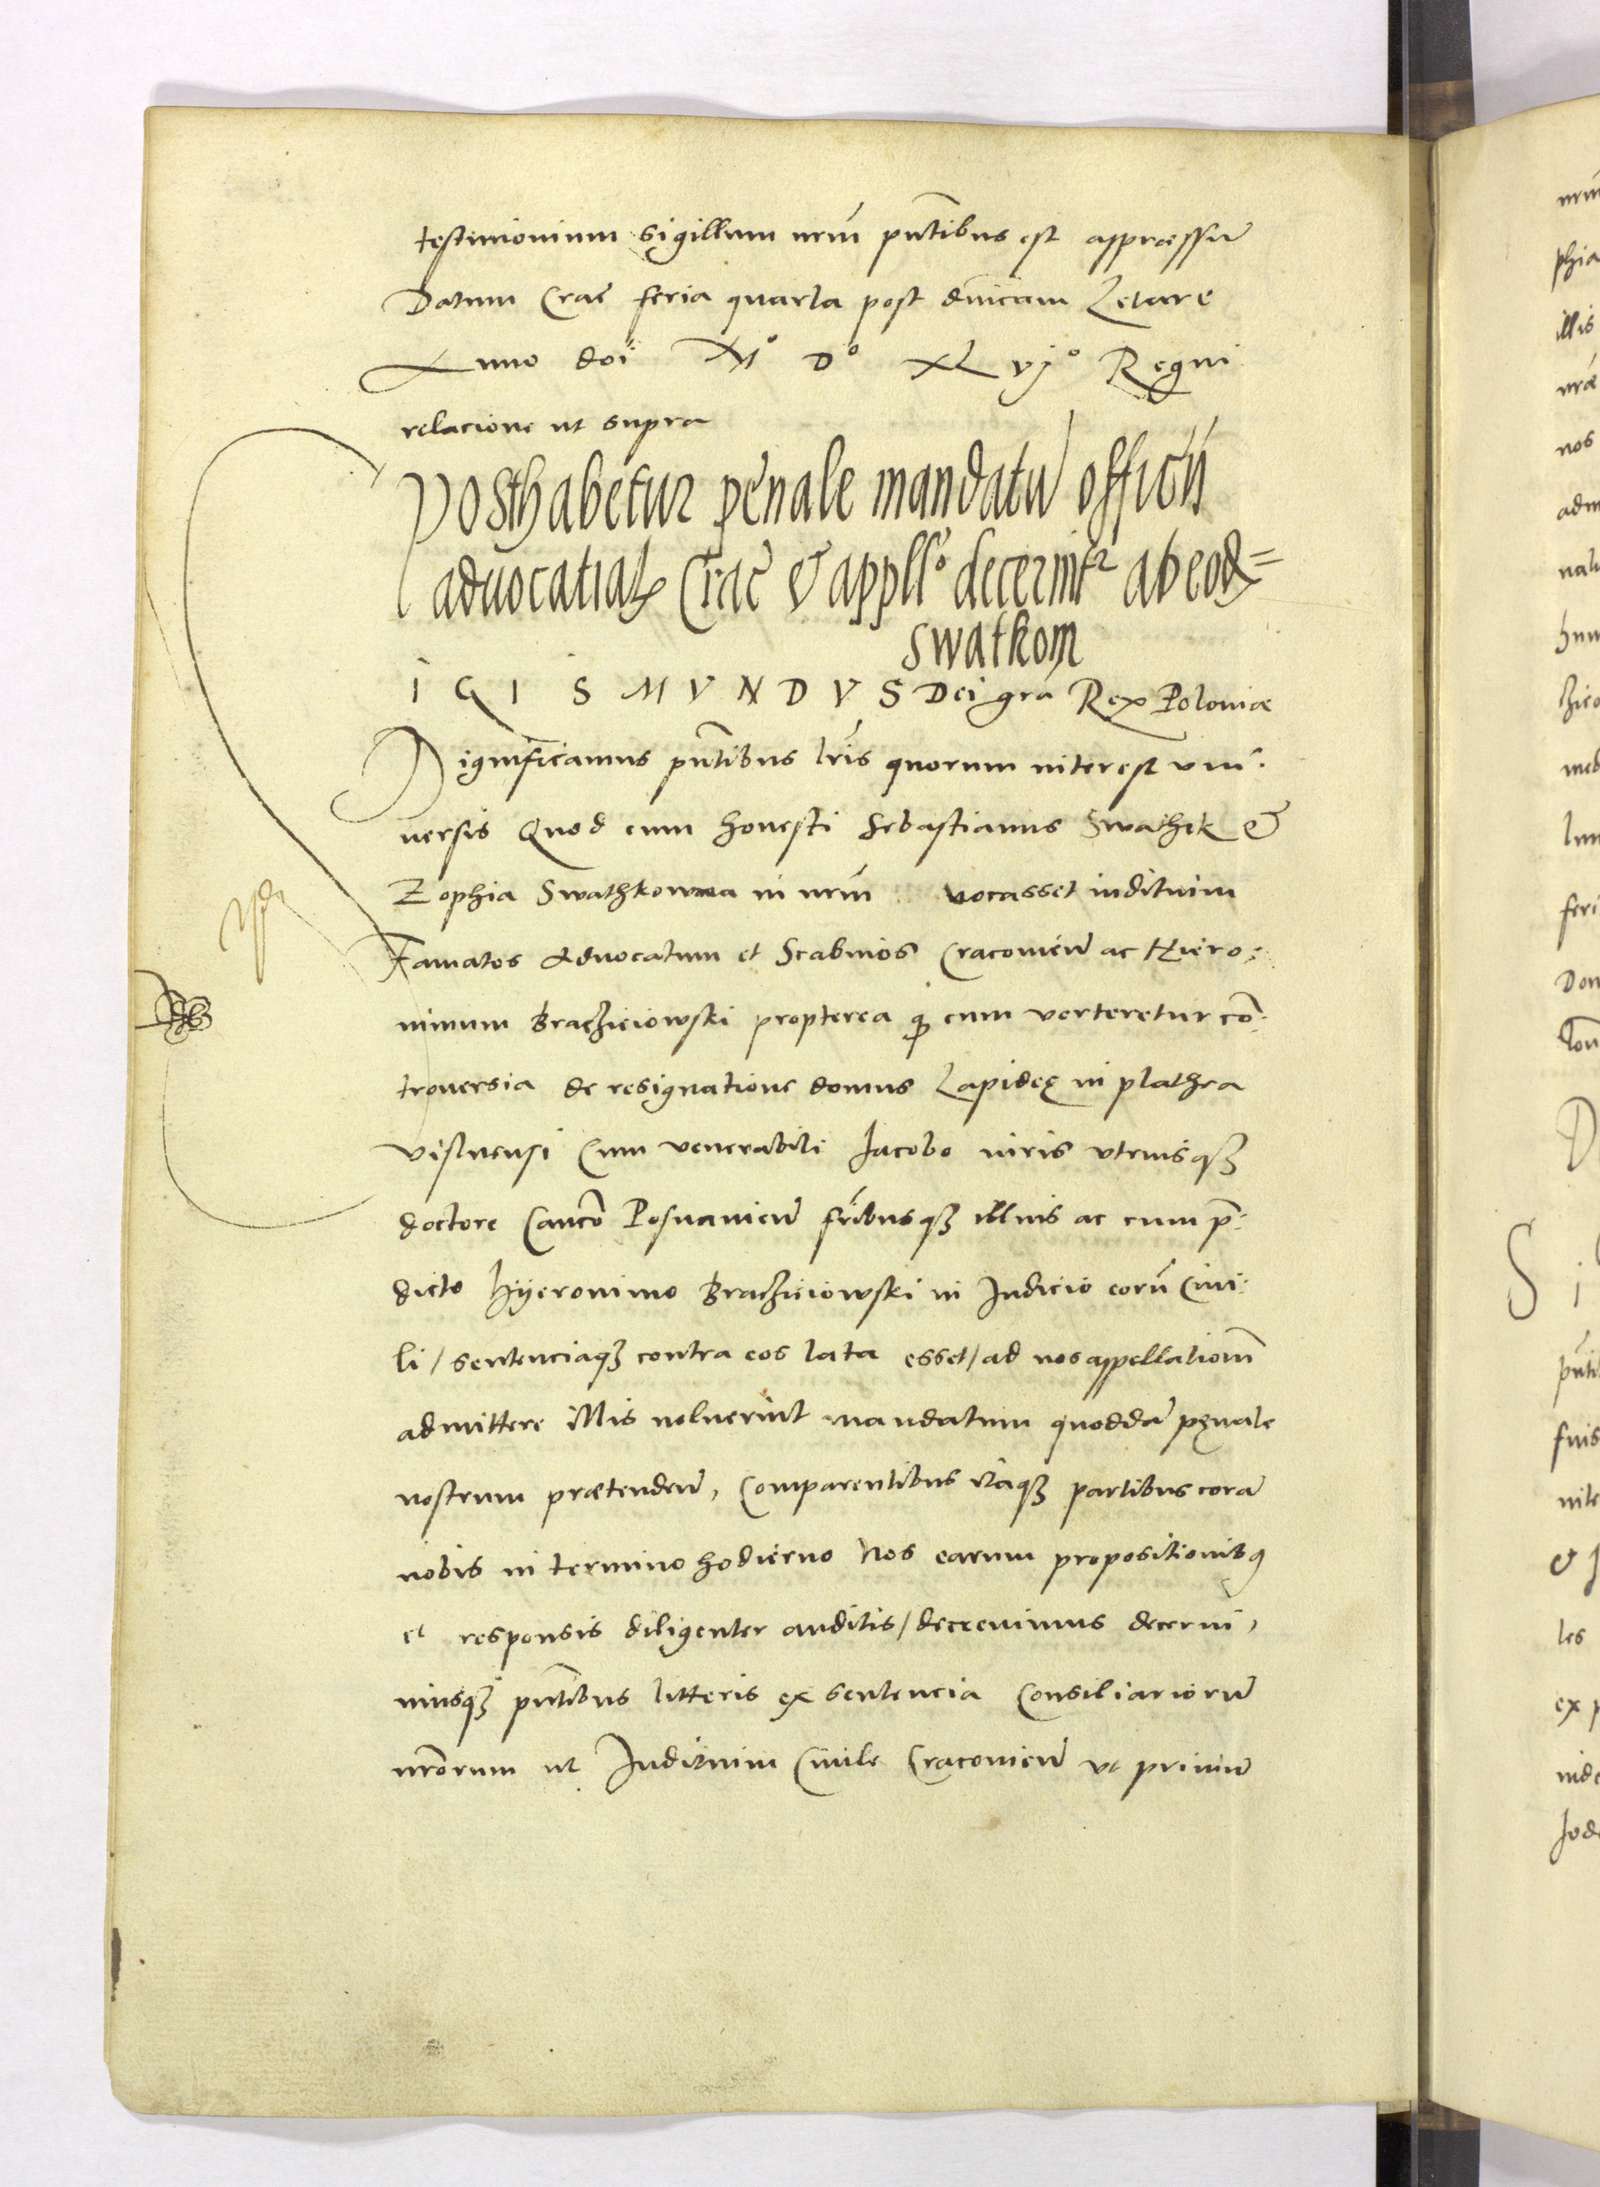 testimonium sigillum nrm̄ pn̄tibus est appraessū
Datum Crac̄ feria quarta post dn̄icam Letare
Anno doī M° D° XLvj° Regni
relacione ut supra
Posthabetur penale mandatū officii
advocatial Crac̄ & appll° decernitr ab eod=
Swatkom
I G I S M V N D V S Dei grā Rex Poloniae
Significamus pn̄tibus lrīs quorum interest vni:
uersis Quod cum honesti Sebastianus Swathek &
Zophia Swathkowna in nrm̄ vocasset inditium
Famatos Advocatum et Scabinos Cracovien̄ ac Hiero:
nimum Brachiciowski propterea q cum verteretur cō:
trouersia de resignatione domus Lapideę in plathea
vislnensi Cum venerabili Jacobo iuris vtriusq3
doctore Canco Posnanien̄ fribusq3 illius ac cum p:
dicto Hyeronimo Brachiciowski in Judicio eorū Ciui:
li / sentenciaq3 contra eos lata esset / ad nos appellationm̄
admittere illis noluerint mandatum quoddā pęnale
nostrum praetenden̄, Comparentibus itaq3 partibus corā
nobis in termino hodierno Nos earum propositionibꝯ
et responsis diligenter auditis / decreuimus decerni,
musq3 pn̄tibus litteris ex sentencia Consiliariorū
nrōrum ut Juditium Ciuile Cracovien̄ vt primū